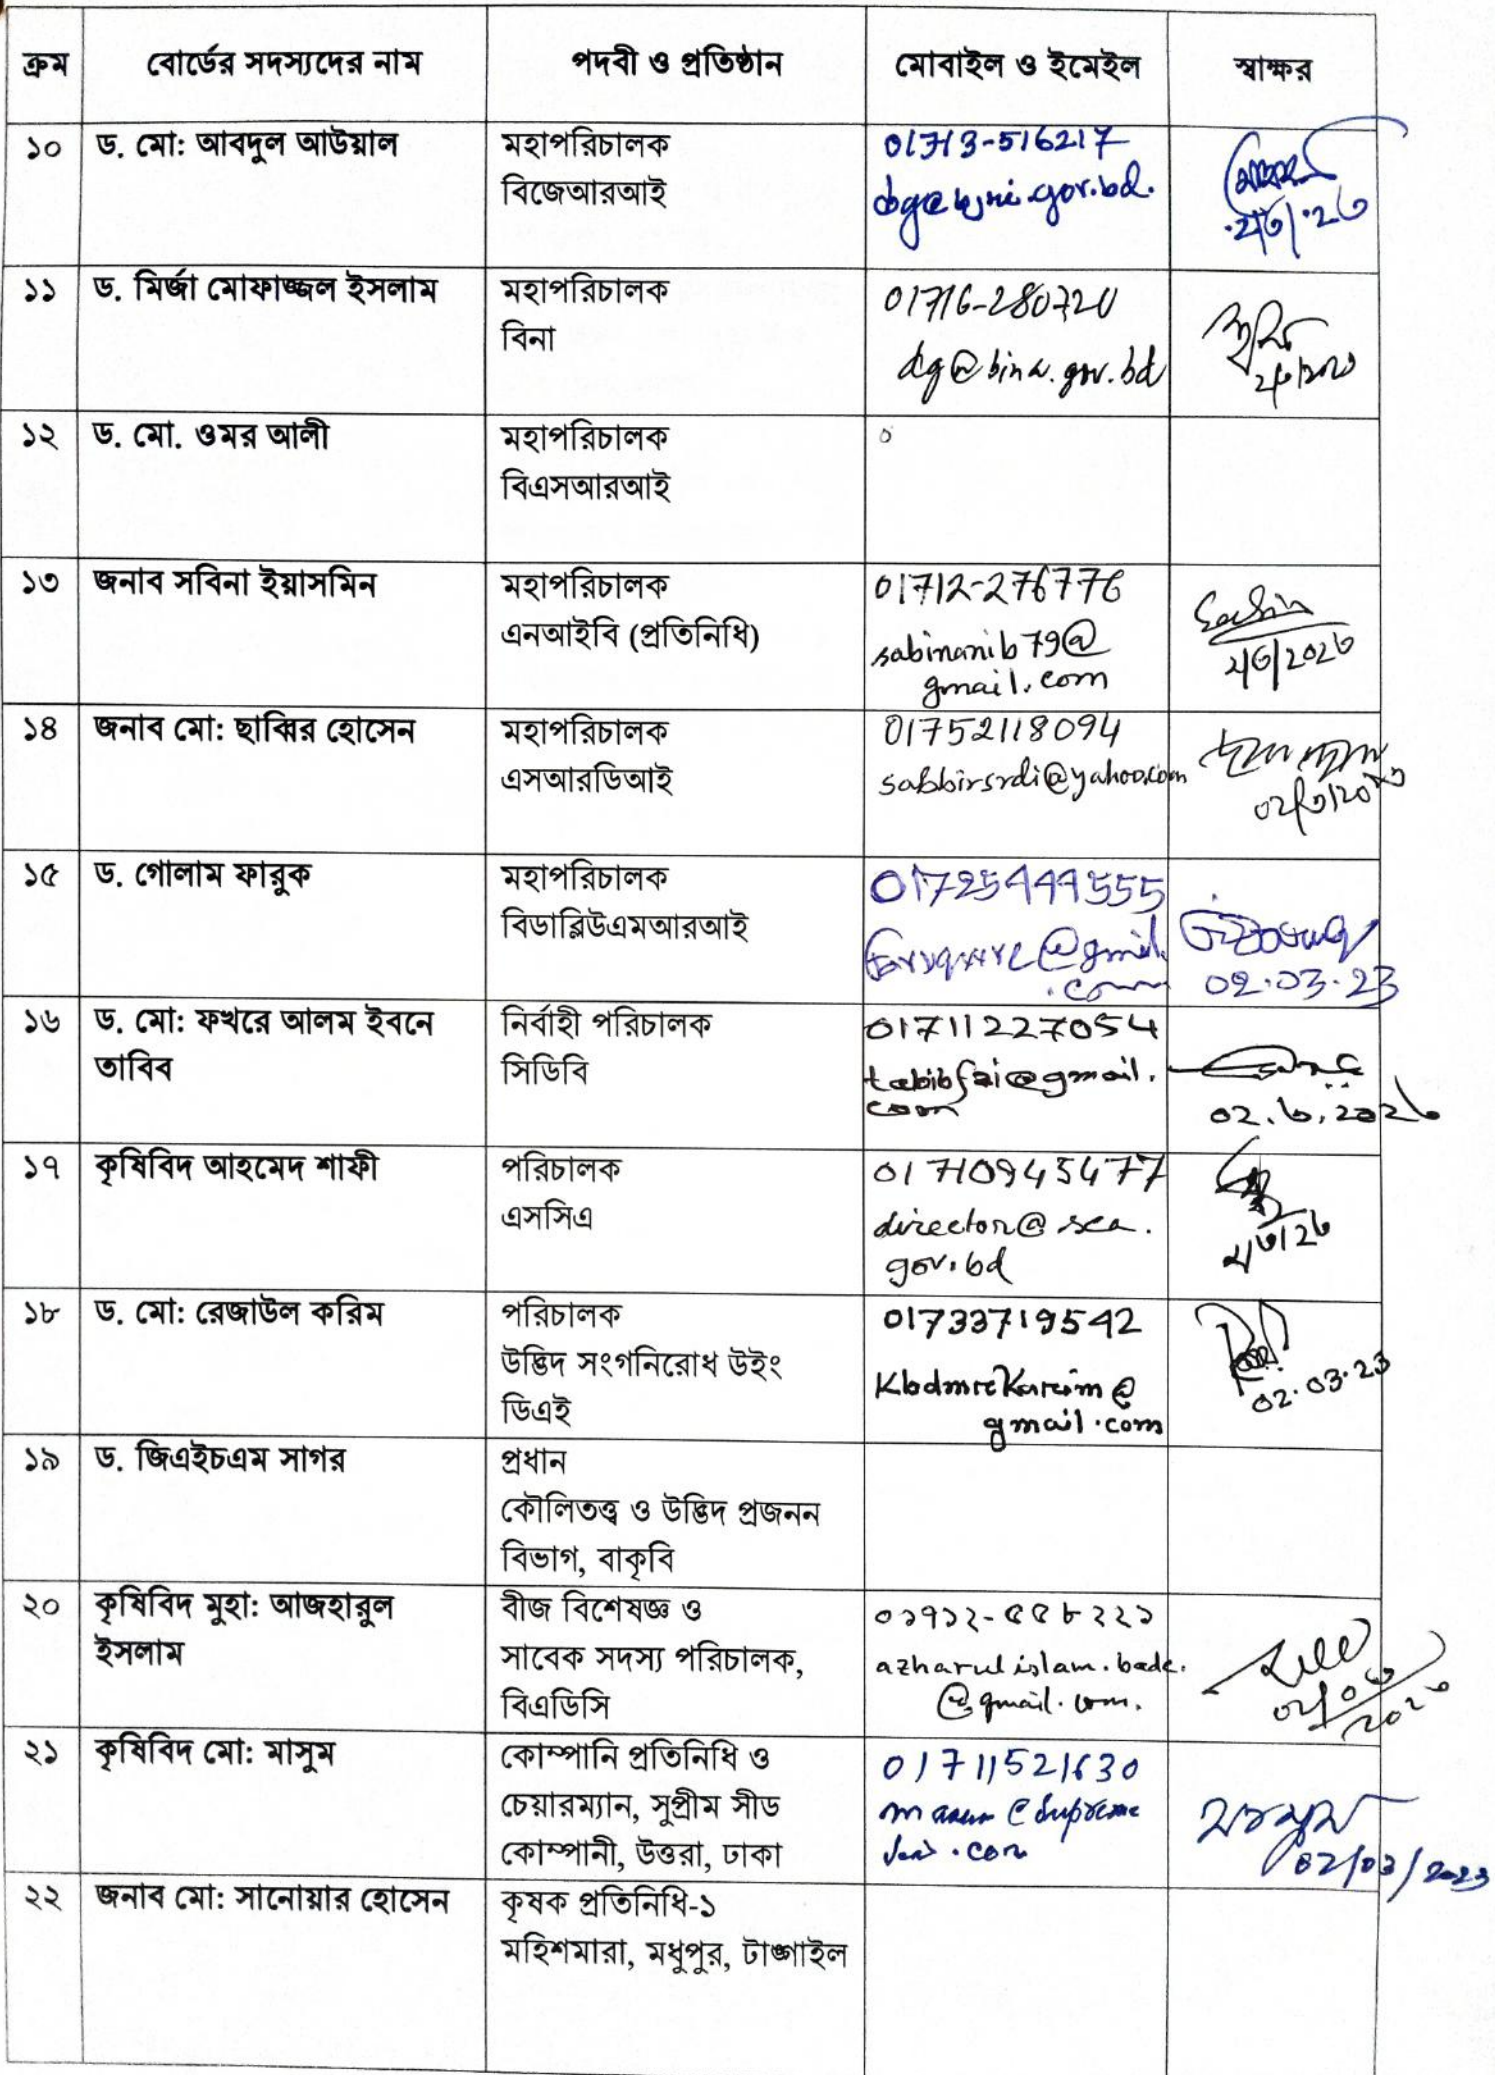 ক্রম
বোর্ডের সদস্যদের নাম
পদবী ও প্রতিষ্ঠান
মোবাইল ও ইমেইল
স্বাক্ষর
১০
ড. মো: আবদুল আউয়াল
মহাপরিচালক
বিজেআরআই
01713-516217
dg@bjri.gov.bd.
১১
ড. মির্জা মোফাজ্জল ইসলাম
মহাপরিচালক
বিনা
01716-280720
dg@bina.gov.bd
১২
ড. মো. ওমর আলী
মহাপরিচালক
বিএসআরআই
১৩
জনাব সবিনা ইয়াসমিন
মহাপরিচালক
এনআইবি (প্রতিনিধি)
01712-276776
sabinanib79@
gmail.com
২/৩/২০২৩
১৪
জনাব মো: ছাব্বির হোসেন
মহাপরিচালক
এসআরডিআই
01752118094
sabbirsrdi@yahoo.com
১৫
ড. গোলাম ফারুক
মহাপরিচালক
বিডাব্লিউএমআরআই
01725444555
.com
02.03.23
১৬
ড. মো: ফখরে আলম ইবনে
তাবিব
নির্বাহী পরিচালক
সিডিবি
01711227054
tabibfai@gmail.
com
০২.৩.২০২৩
১৭
কৃষিবিদ আহমেদ শাফী
পরিচালক
এসসিএ
01710945477
director@sca.
gov.bd
২/৩/২৩
১৮
ড. মো: রেজাউল করিম
পরিচালক
উদ্ভিদ সংগনিরোধ উইং
ডিএই
01733719542
kbdmrekarim@
gmail.com
02.03.23
১৯
ড. জিএইচএম সাগর
প্রধান
কৌলিতত্ত্ব ও উদ্ভিদ প্রজনন
বিভাগ, বাকৃবি
২০
কৃষিবিদ মুহা: আজহারুল
ইসলাম
বীজ বিশেষজ্ঞ ও
সাবেক সদস্য পরিচালক,
বিএডিসি
০১৭১২-৫৫৮২২১
azharulislam.badc.
@gmail.com.
০২/০৩/
২০২৩
২১
কৃষিবিদ মো: মাসুম
কোম্পানি প্রতিনিধি ও
চেয়ারম্যান, সুপ্রীম সীড
কোম্পানী, উত্তরা, ঢাকা
01711521630
masum@supreme
seed.com
মাসুম
02/03/2023
২২
জনাব মো: সানোয়ার হোসেন
কৃষক প্রতিনিধি-১
মহিশমারা, মধুপুর, টাঙ্গাইল